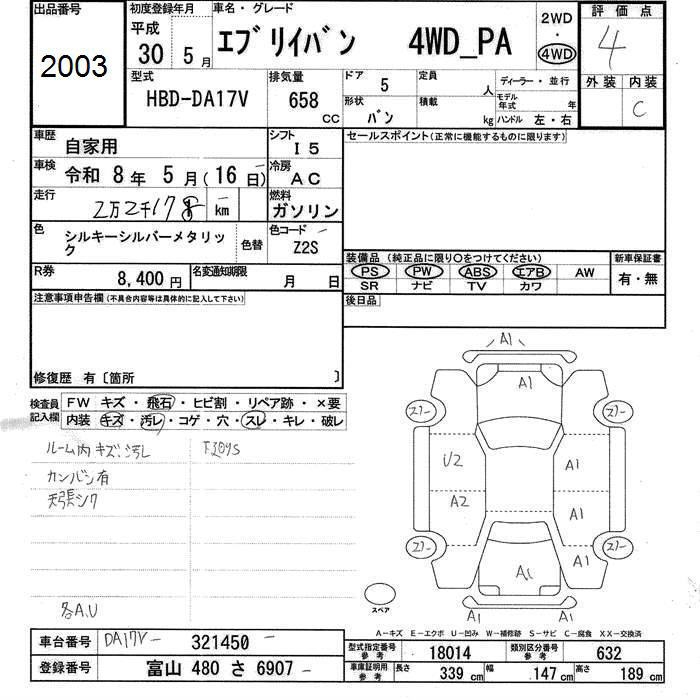 出品番号
2003
初度登録年月
平成
30 5 月
車名・グレード
エブリイバン 4WD_PA
2WD
・
4WD
評価点
4
外装 内装
C
型式
HBD-DA17V
排気量
658
CC
ドア 5
形状
バン
定員
人
積載
kg
ディーラー・並行
モデル年式 年
ハンドル 左・右
車歴
自家用
シフト
I5
車検
令和 8 年 5 月(16 日)
冷房
AC
走行
2万2千17
km
燃料
ガソリン
色
シルキーシルバーメタリック
色替
色コード
Z2S
R券
8,400 円
名変通知期限
月 日
セールスポイント(正常に機能するものに限ります)
装備品(純正品に限り〇をつけてください)
PS PW ABS エアB AW
SR ナビ TV カワ
新車保証書
有・無
後日品
注意事項申告欄(不具合内容等は具体的に記入して下さい)
修復歴 有〔箇所 〕
検査員記入欄
FW キズ・飛石・ヒビ割・リペア跡・×要
内装 キズ・汚レ・コゲ・穴・スレ・キレ・破レ
ルーム内キズ、汚レ
カンバン有
天張シワ
各A.U
A1
A1
スリー
スリー
U2
A1
A2
A1
スリー
スリー
A1
A1
A1
A1
スペア
A-キズ E-エクボ U-凹み W-補修跡 S-サビ C-腐食 XX-交換済
車台番号
DA17V- 321450
登録番号
富山 480 さ 6907
型式指定番号 参考
18014
類別区分番号 参考
632
車庫証明用 参考
長さ 339 cm 幅 147 cm 高さ 189 cm